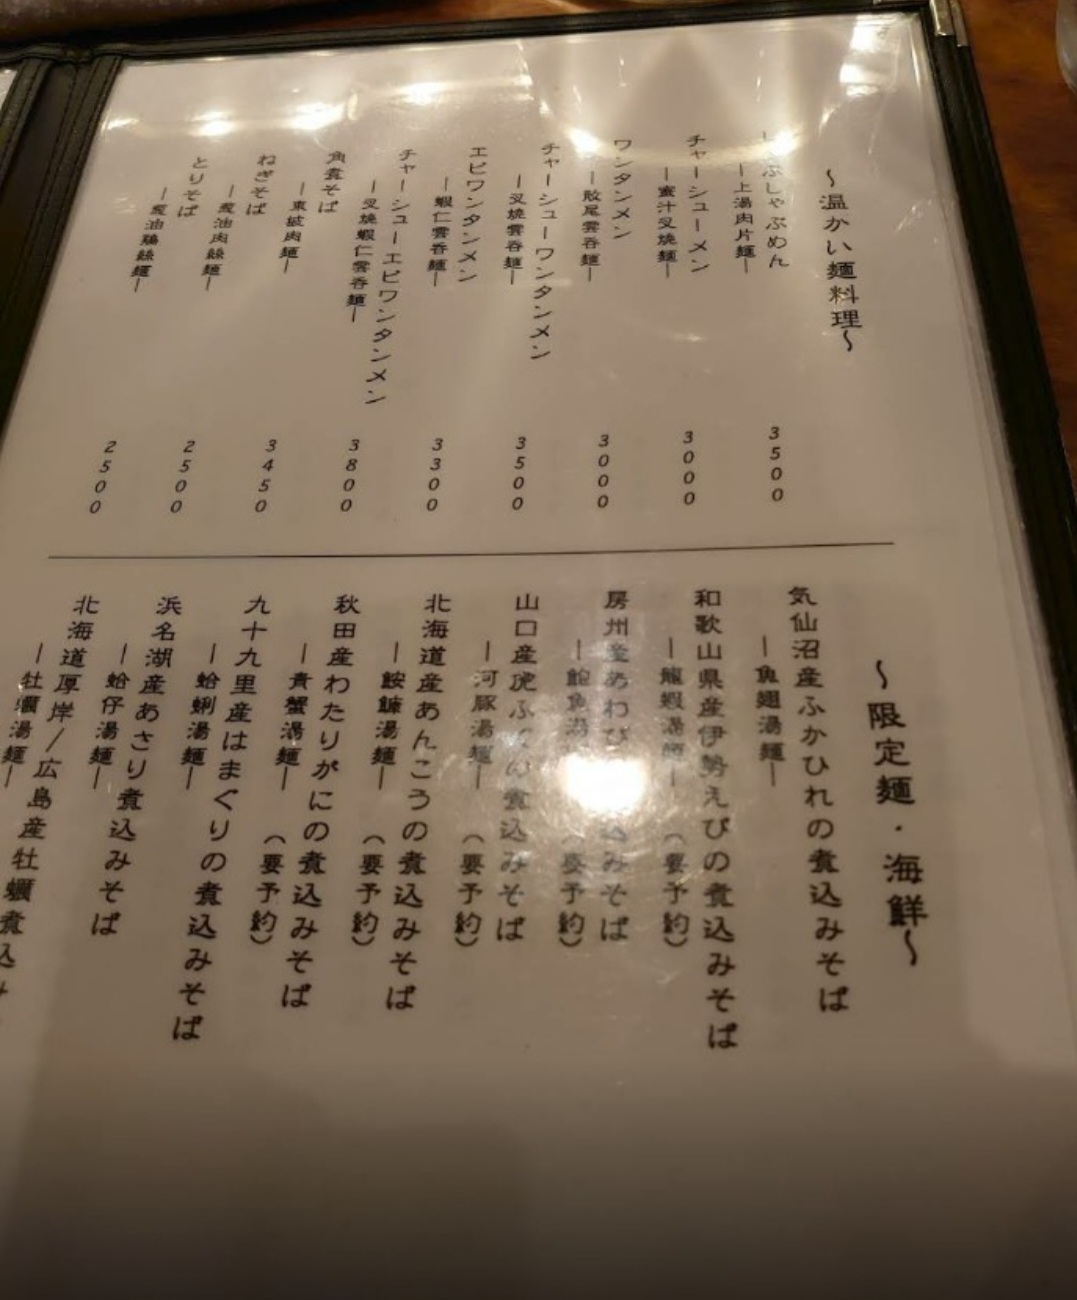 ～温かい麺料理～
しゃぶしゃぶめん
―上湯肉片麺―
3500
チャーシューメン
―蜜汁叉焼麺―
3000
ワンタンメン
―敗尾雲呑麺―
3000
チャーシューワンタンメン
―叉焼雲呑麺―
3500
エビワンタンメン
―蝦仁雲呑麺―
3300
チャーシューエビワンタンメン
―叉焼蝦仁雲呑麺―
3800
角煮そば
―東坡肉麺―
3450
ねぎそば
―葱油肉絲麺―
2500
とりそば
―葱油鶏絲麺―
2500
～限定麺・海鮮～
気仙沼産ふかひれの煮込みそば
―魚翅湯麺―
和歌山県産伊勢えびの煮込みそば
―龍蝦湯麺―
（要予約）
房州産あわび 込みそば
―鮑魚湯
（要予約）
山口産虎ふぐの煮込みそば
―河豚湯麺―
（要予約）
北海道産あんこうの煮込みそば
―鮟鱇湯麺―
（要予約）
秋田産わたりがにの煮込みそば
―青蟹湯麺―
（要予約）
九十九里産はまぐりの煮込みそば
―蛤蜊湯麺―
浜名湖産あさり煮込みそば
―蛤仔湯麺―
北海道厚岸／広島産牡蠣煮込み
―牡蠣湯麺―